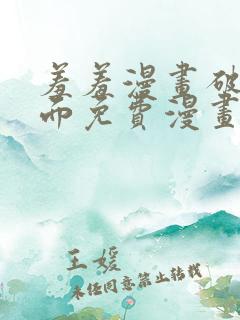 羞羞漫畫破
而免費漫畫
王媛
未经同意禁止转载